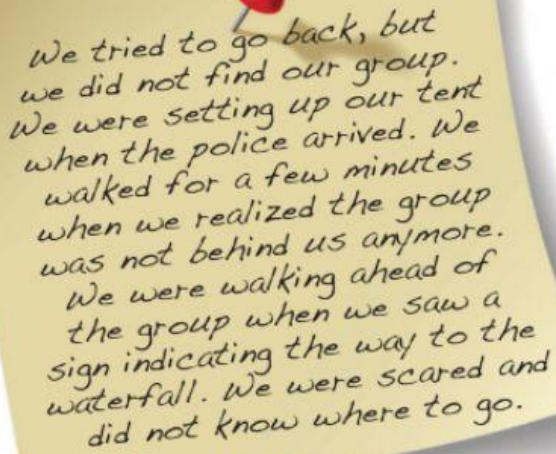 We tried to go back, but
we did not find our group.
We were setting up our tent
when the police arrived. We
walked for a few minutes
when we realized the group
was not behind us anymore.
We were walking ahead of
the group when we saw a
sign indicating the way to the
waterfall. We were scared and
did not know where to go.